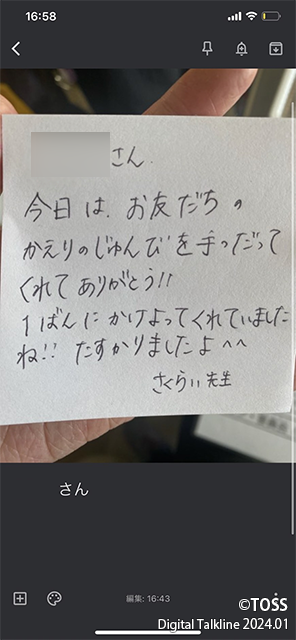 16:58
さん.
今日は、お友だちの
かえりのじゅんびを手つだって
くれてありがとう!!
1ばんにかけよってくれていました
ね!! たすかりましたよ^^
さくらい先生
さん
編集: 16:43
©TOSS
Digital Talkline 2024.01